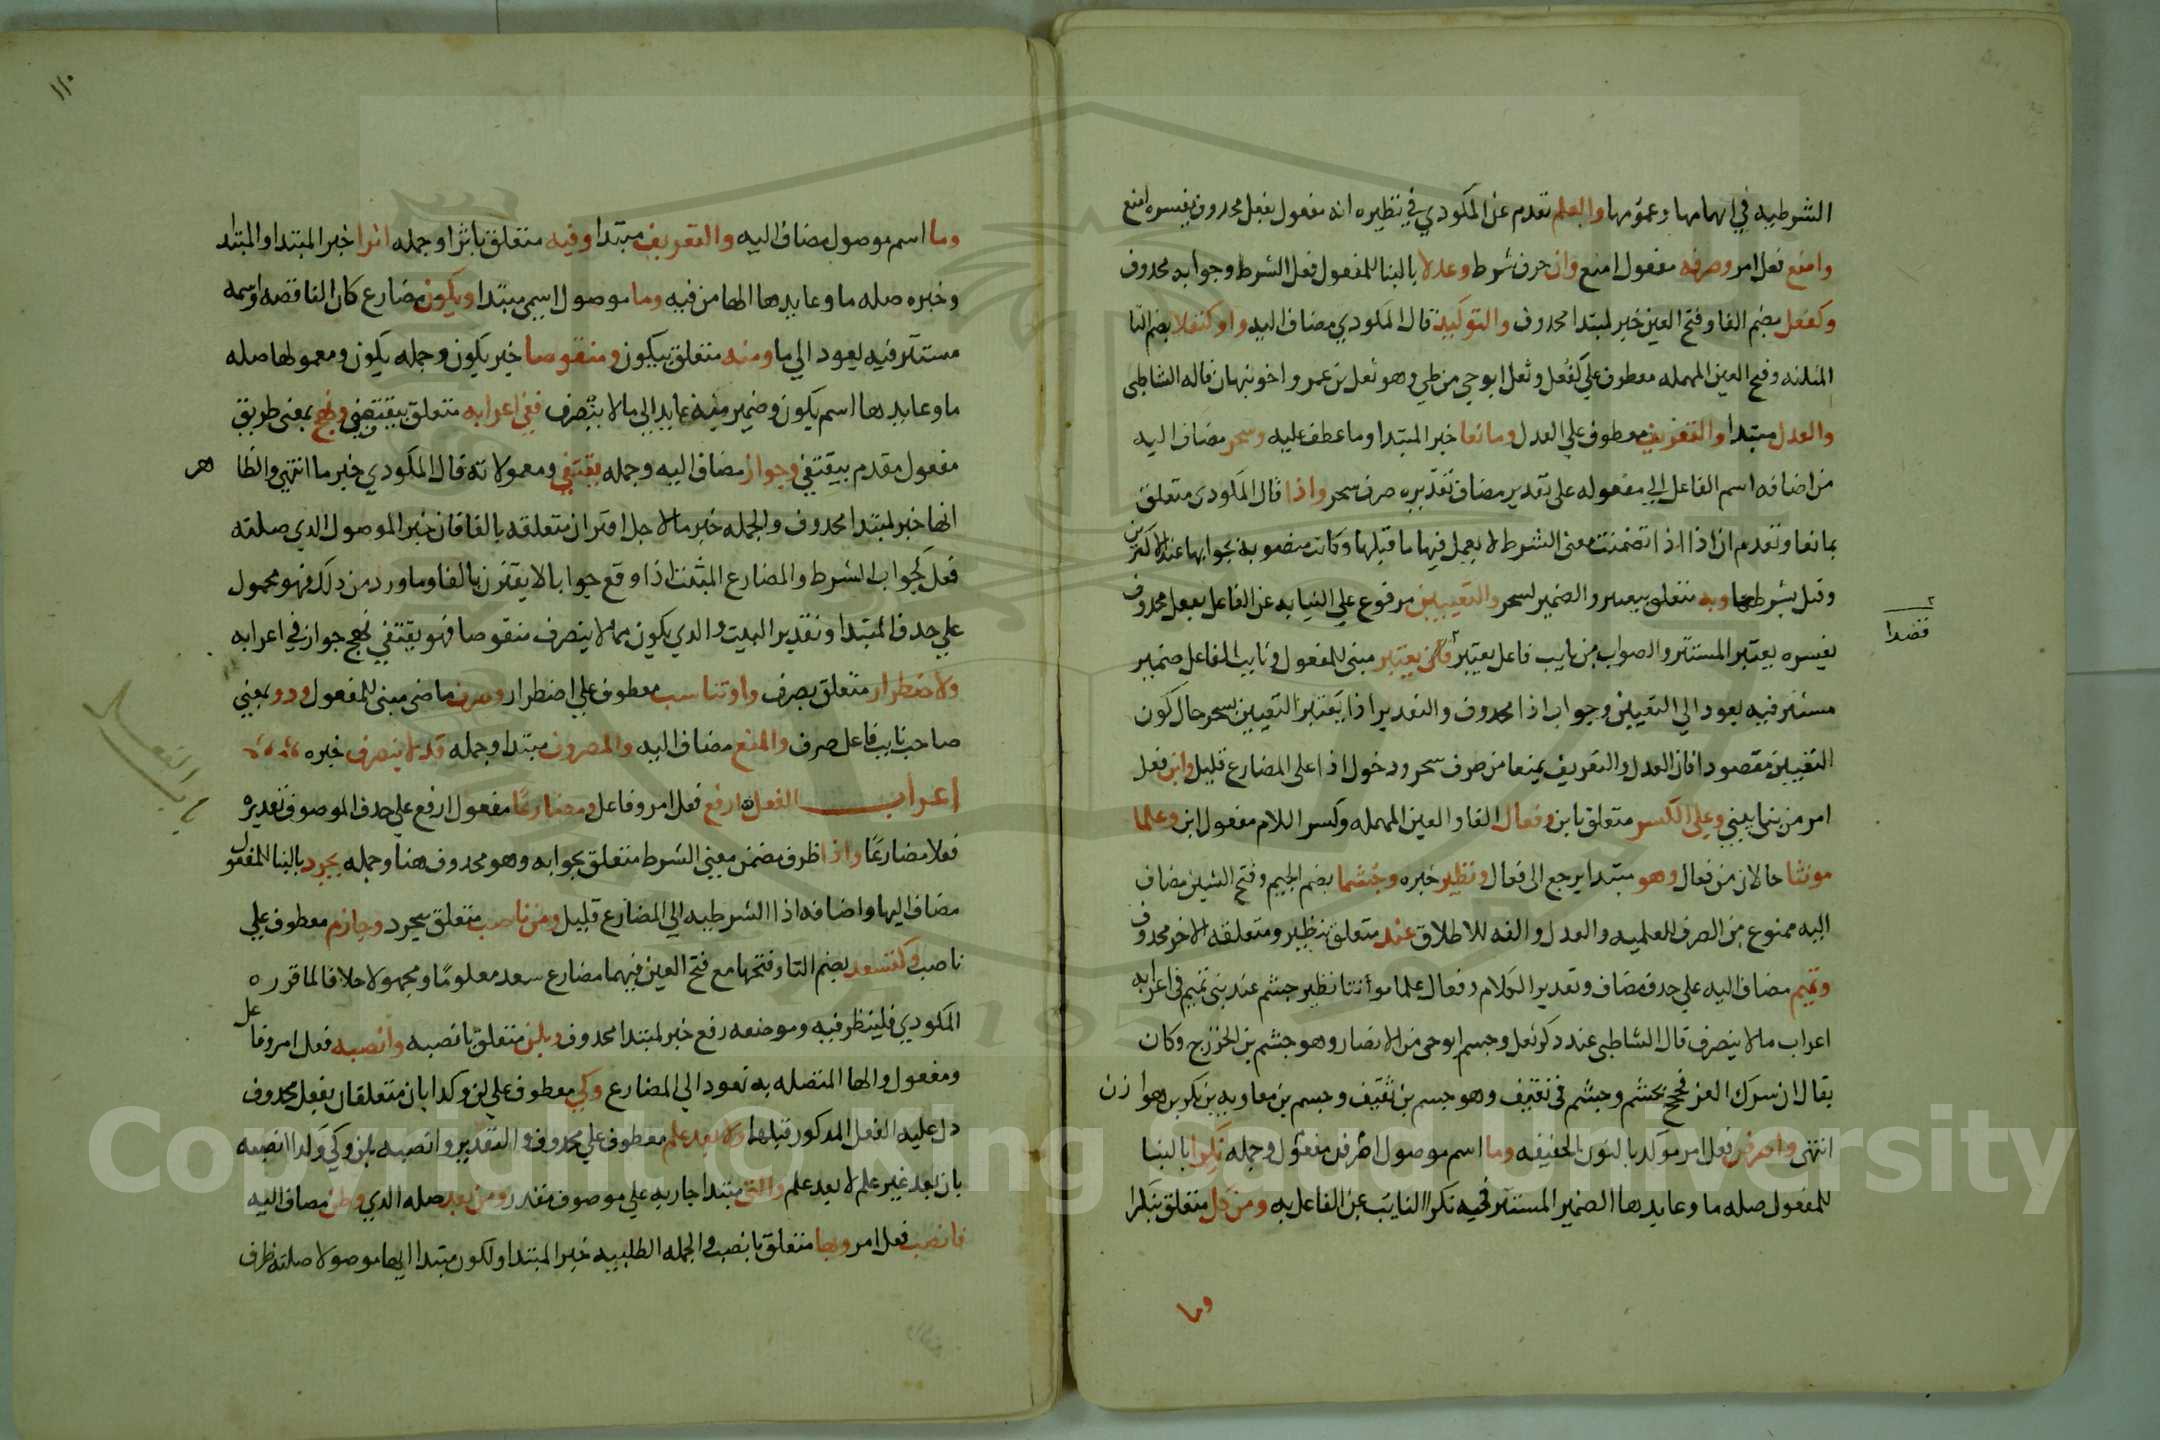 الشرطيه في ابهامها وعمومها والعلم تقدم عن المكودي في نظيره انه مفعول بفعل محذوف يفسره امنع
وامنع فعل امر وصرفه مفعول امنع وان حرف شرط وعدلا بالبنا للمفعول فعل الشرط وجوابه محذوف
وكفعل بضم الفا وفتح العين خبر لمبتدا محذوف والتوكيد قال المكودي مضاف اليه واو كثعلا بضم الثا
المثلثه وفتح العين المهمله معطوف علي كفعل وثعل ابو حي من طي وهو ثعل بن عمرو اخو نبهان قاله الشاطبي
والعدل مبتدا والتعريف معطوف علي العدل ومانعا خبر المبتدا وما عطف عليه وسحر مضاف اليه
من اضافه اسم الفاعل الي مفعوله علي تقدير مضاف تقديره صرف سحر واذا قال المكودي متعلق
بمانعا وتقدم ان اذا اذا تضمنت معني الشرط لا يعمل فيها ما قبلها وكانت منصوبة بجوابها عند الاكثرين
وقيل بشرطها وبه متعلق بيعتبر والضمير لسحر والتعيين مرفوع علي النيابه عن الفاعل بفعل محذوف
يفسره يعتبر المستتر والصواب من نايب فاعل يعتبر يعتبر مبني للمفعول ونايب الفاعل ضمير
مستتر فيه يعود الي التعيين وجواب اذا محذوف والتقدير اذا يعتبر التعيين لسحر حال كون
التعيين مقصودا فان العدل والتعريف يمنعا من صرف سحر ودخول اذا علي المضارع قليل وابن فعل
امر من بني يبني وعلي الكسر متعلق بابن وفعال الفا والعين المهمله وكسر اللام مفعول ابن وعلما
مونثا حالان من فعال وهو مبتدا يرجع الي فعال ونظير خبره وجشما بضم الجيم وفتح الشين مضاف
اليه ممنوع من الصرف للعلميه والعدل والفه للاطلاق عند متعلق بنظير ومتعلقه الاخر محذوف
وتميم مضاف اليه علي حذف مضاف وتقدير الكلام وفعال علما مؤنثا نظير جشم عند بني تميم في اعرابه
اعراب ما لا ينصرف قال الشاطبي عند ذكر ثعل وجشم ابو حي من الانصار وهو جشم بن الخزرج وكان
يقال ان سرك العز فجحجح بجشم وجشم في ثقيف وهو جشم بن ثقيف وجشم بن معاويه بن بكر بن هوازن
انتهي واصرفن فعل امر موكد بالنون الخفيفه وما اسم موصول اصرفن مفعول وجمله نكرا بالبنا
للمفعول صله ما وعايدها الضمير المستتر في نكرا النايب عن الفاعل به ومن كل متعلق بنكرا
وما
قصدا
١١٠
وما اسم موصول مضاف اليه والتعريف مبتدا وفيه متعلق باثرا وجمله اثرا خبر المبتدا والمبتدا
وخبره صله ما وعايدها الها من فيه وما موصول اسمي مبتدا ويكون مضارع كان الناقصه واسمه
مستتر فيه يعود الي ما ومنه متعلق بيكون ومنقوصا خبر يكون وجمله يكون ومعمولها صله
ما وعايدها اسم يكون وضمير منه عايد الي ما لا ينصرف ففي اعرابه متعلق بيقتفي ونهج بمعني طريق
مفعول مقدم بيقتفي وجوار مضاف اليه وجمله يقتفي ومعمولاته قال المكودي خبر ما انتهي والظاهر
انها خبر لمبتدا محذوف والجمله خبر ما لاجل اقتران متعلقه بالفا فان خبر الموصول الذي صلته
فعل كجواب الشرط والمضارع المثبت اذا وقع جوابا لا يقترن بالفا وما ورد من ذلك فهو محمول
علي حذف المبتدا وتقدير البيت والذي يكون مما لا ينصرف منقوصا فهو يقتفي نهج جوار في اعرابه
ولاضطرار متعلق بصرف واو تناسب معطوف علي اضطرار وصرف ماضي مبني للمفعول وذو بمعني
صاحب نايب فاعل صرف والمنع مضاف اليه والمصروف مبتدا وجمله قد لا ينصرف خبره
اعراب الفعل ارفع فعل امر وفاعل ومضارعًا مفعول ارفع علي حذف الموصوف تقديره
فعلا مضارعًا واذا ظرف مضمن معني الشرط متعلق بجوابه وهو محذوف هنا وجمله يجرد بالبنا للمفعول
مضاف اليها واضافه اذا الشرطيه الي المضارع قليل ومن ناصب متعلق بيجرد وجازم معطوف علي
ناصب وكتسعد بضم التا وفتحها مع فتح العين فيهما مضارع سعد معلومًا ومجهولا خلافا لما قرره
المكودي فلينظر فيه وموضعه رفع خبر لمبتدا محذوف وبلن متعلق بانصبه وانصبه فعل امر وفاعل
ومفعول والها المتصله به تعود الي المضارع وكي معطوف علي لن وكذا بان متعلقان بفعل محذوف
دل عليه الفعل المذكور قبلها ولا بعد علم معطوف علي محذوف والتقدير وانصبه بلن وكي وكذا انصبه
بان بعد غير علم لا بعد علم والتي مبتدا جاريه علي موصوف مقدر ومن بعد صله الذي وظن مضاف اليه
فانصب فعل امر وبها متعلق بانصب والجمله الطلبيه خبر المبتدا ولكون مبتدا ايها موصولا صلته ظرف
باب الفعل